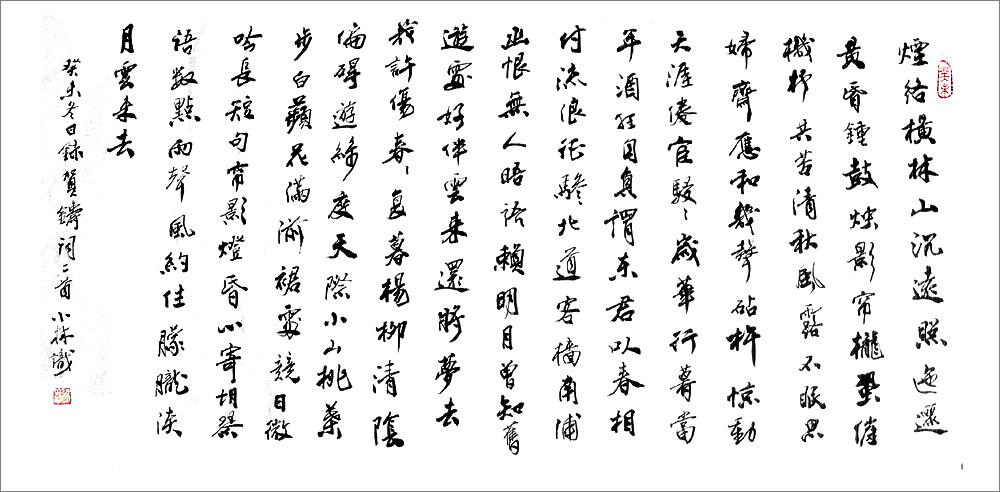 煙絡橫林山沉遠照迤邐
黃昏鍾鼓燭影帘櫳蛩催
機杼共苦清秋風露不眠思
婦齊應和幾聲砧杵驚動
天涯倦宦駸〻歲華行暮當
年酒狂自負謂東君以春相
付流浪征驂北道客檣南浦
幽恨無人晤語賴明月曾知舊
遊處好伴雲來還將夢去
幾許傷春〻復暮楊柳清陰
偏碍遊絲度天際小山桃葉
步白蘋花滿湔裙處競日微
吟長短句帘影燈昏心寄胡琴
語數點雨聲風約住朦朧淡
月雲來去
癸未冬日錄賀鑄詞二首小林識